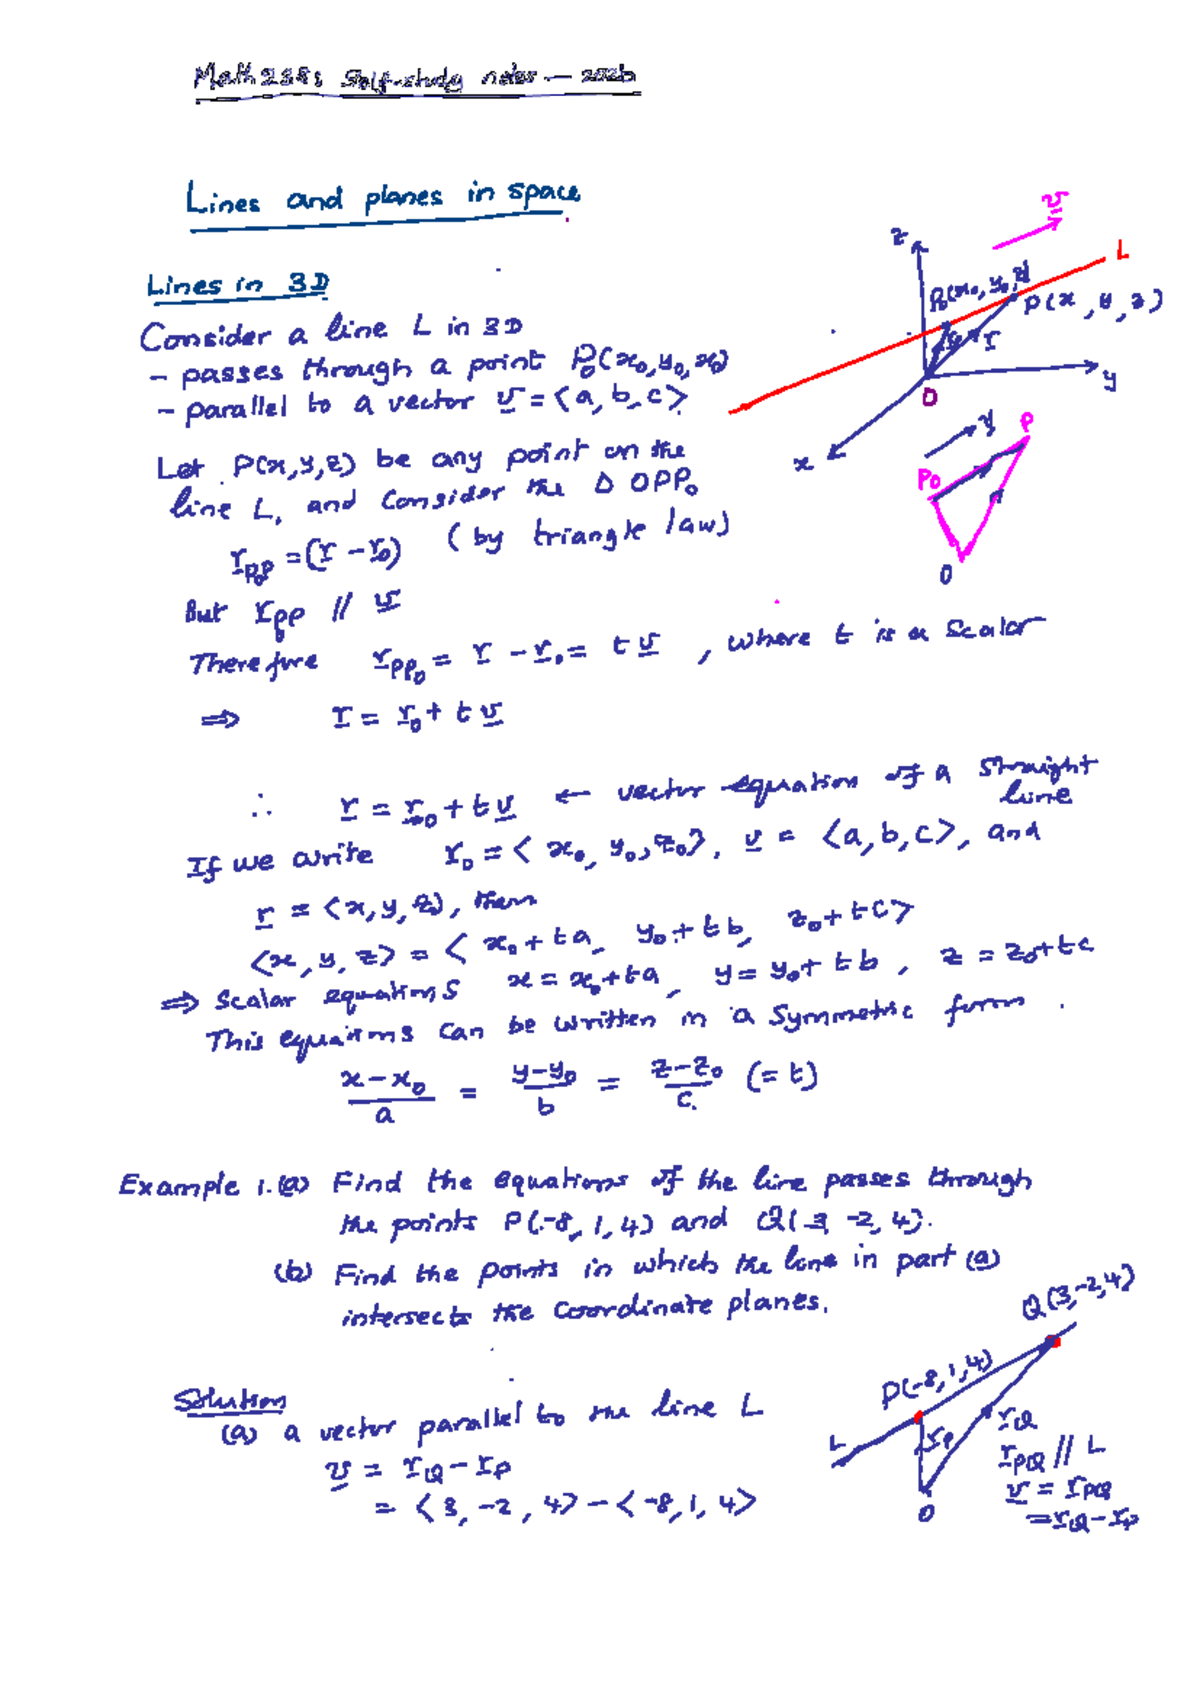 Math 238: Self-study notes — 2026
Lines and planes in space
Lines in 3D
Consider a line L in 3D
- passes through a point P₀(x₀, y₀, x₀)
- parallel to a vector v = <a, b, c>
Let P(x, y, z) be any point on the
line L, and Consider the Δ OPP₀
r_P₀P = (r - r₀) (by triangle law)
But r_P₀P // v
Therefore r_PP₀ = r - r₀ = t v , where t is a Scalar
⇒ r = r₀ + t v
∴ r = r₀ + t v ← vector equation of a straight
line
If we write r₀ = < x₀, y₀, z₀>, v = <a, b, c>, and
r = <x, y, z>, then
<x, y, z> = < x₀ + ta, y₀ + tb, z₀ + tc>
⇒ Scalar equations x = x₀ + ta, y = y₀ + tb , z = z₀ + tc
This equations can be written in a Symmetric form .
x - x₀ / a = y - y₀ / b = z - z₀ / c (= t)
Example 1. (a) Find the equations of the line passes through
the points P(-8, 1, 4) and Q(3, -2, 4).
(b) Find the points in which the line in part (a)
intersects the Coordinate planes.
Solution
(a) a vector parallel to the line L
v = r_Q - r_P
= <3, -2, 4> - <-8, 1, 4>
v
z
L
P₀(x₀, y₀, z)
P(x, y, z)
r₀
r
O
y
x
v
P
P₀
O
Q(3, -2, 4)
P(-8, 1, 4)
L
r_P
r_Q
O
r_PQ // L
v = r_PQ
= r_Q - r_P